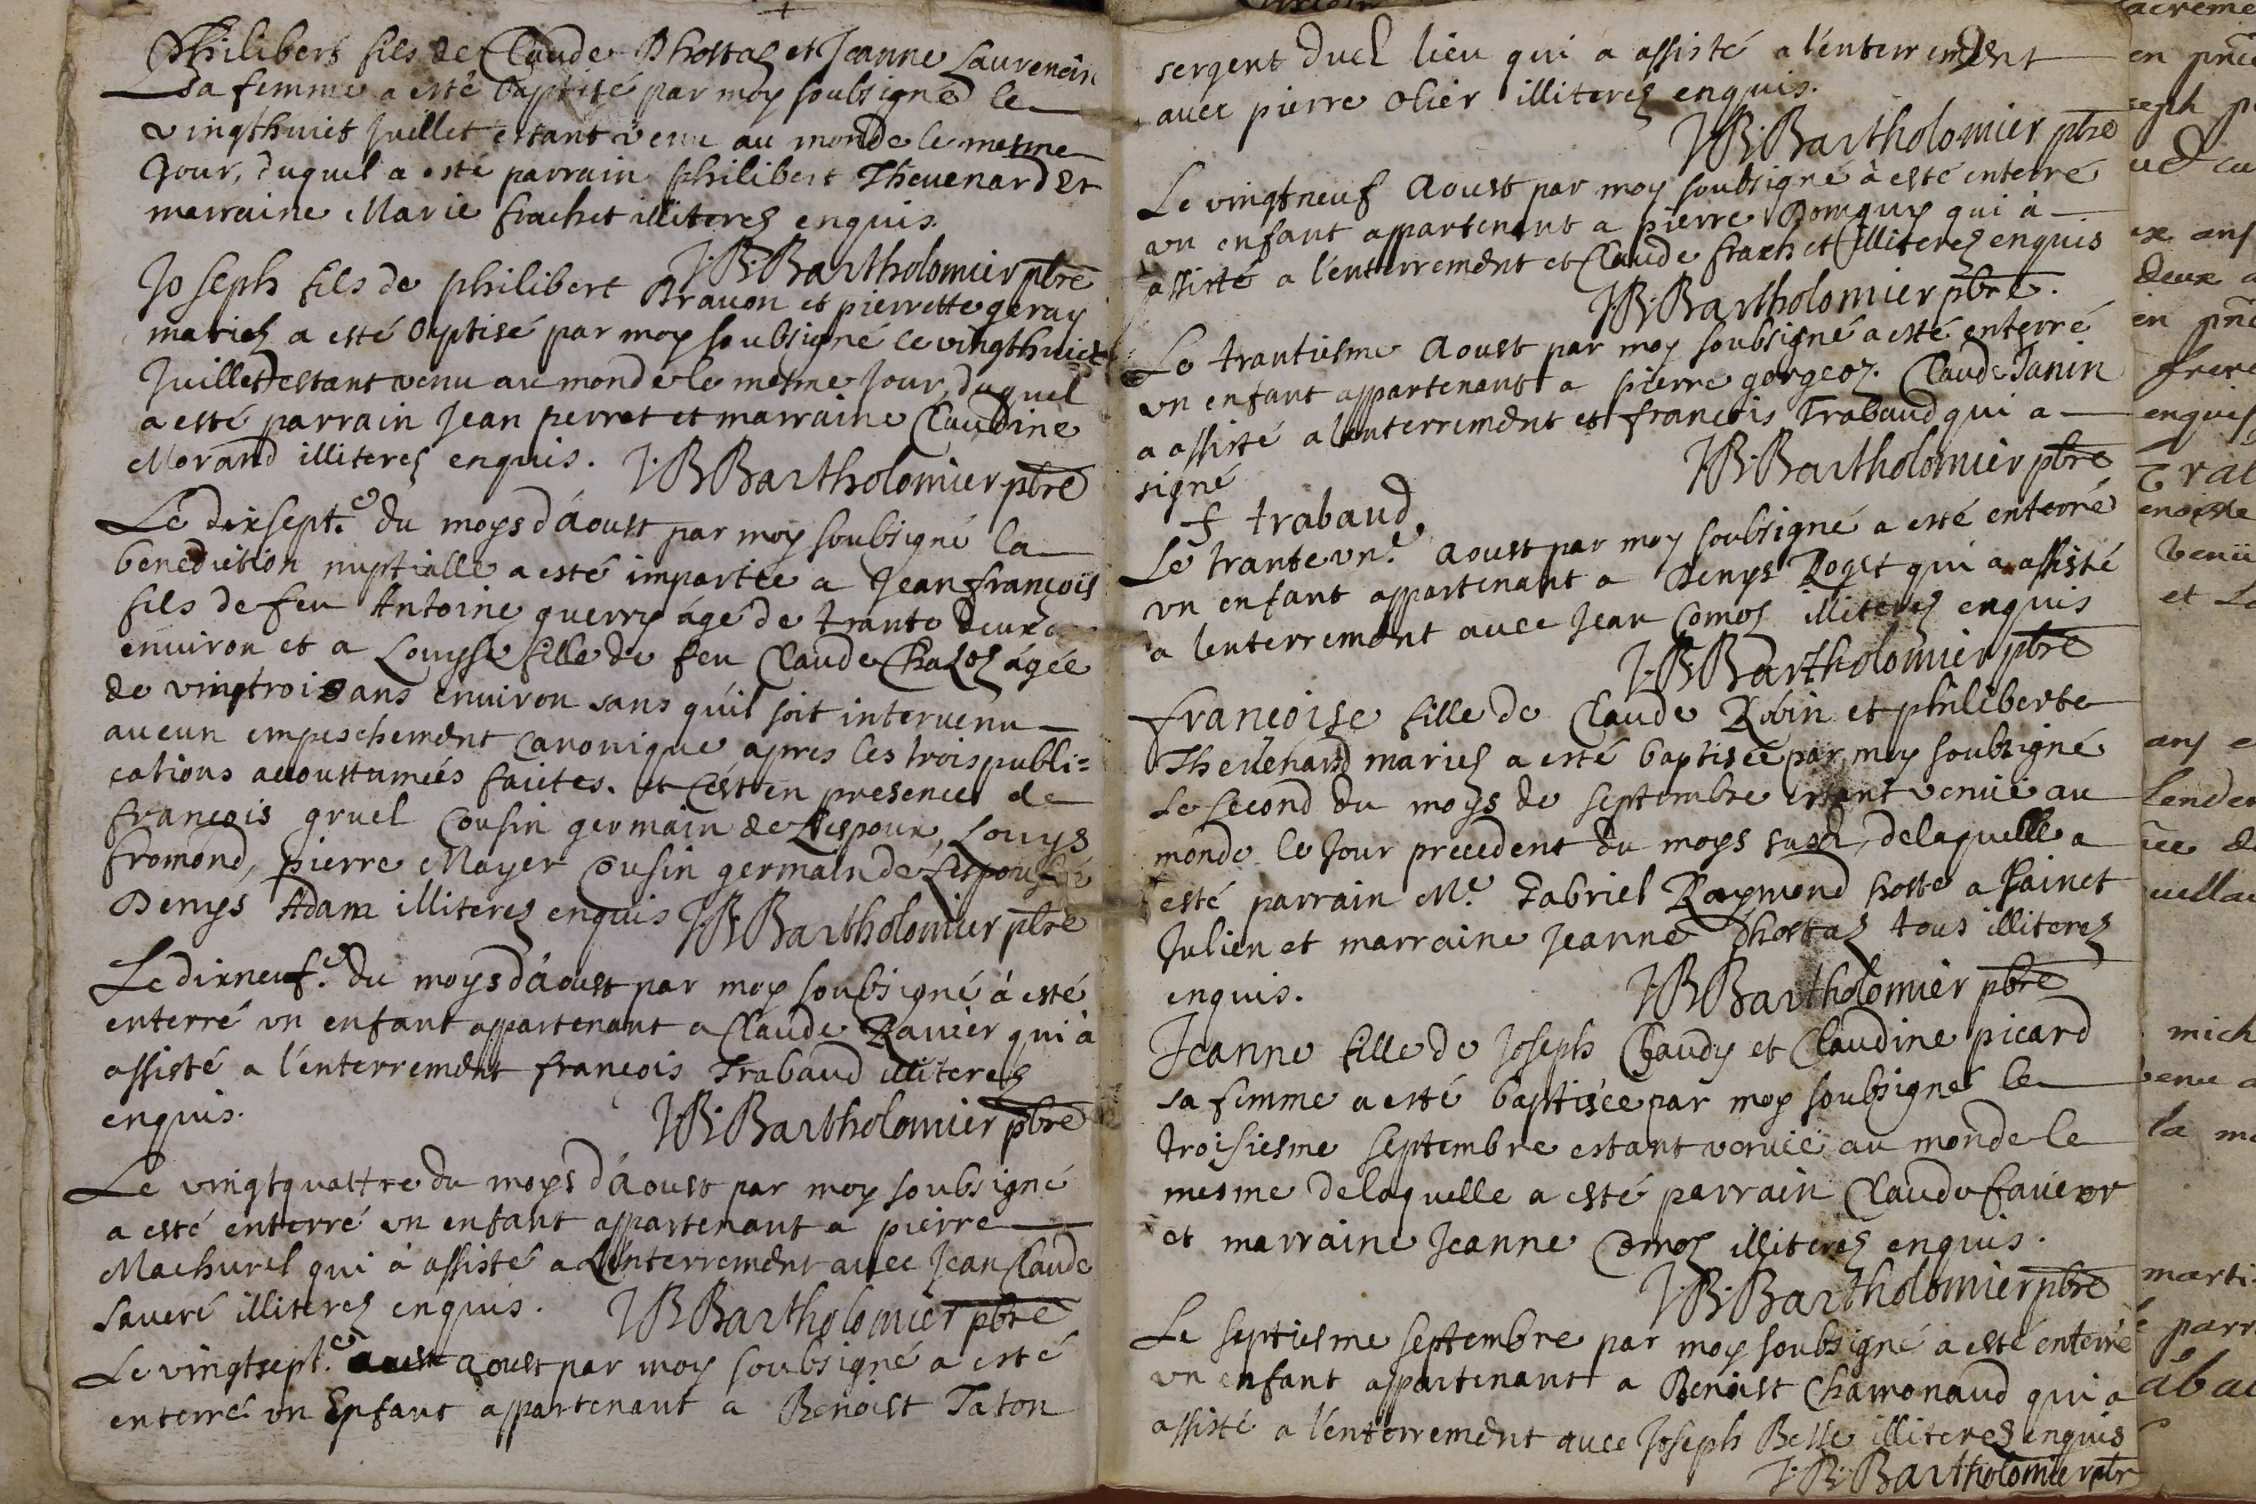 Philibert fils de Claude Dhostaz et Jeanne Laurencin
sa femme a esté baptisé par moy soubsigné le
vingthuict Juillet estant venu au monde le mesme
Jour, duquel a esté parrain philibert Thevenard et
marraine Marie frachet illiterez enquis.
J:B:Bartholomier pbre
Joseph fils de philibert Bravon et pierrette geray
mariez a esté baptisé par moy soubsigné le vingthuict
Juillet estant venu au monde le mesme Jour, duquel
a esté parrain Jean perret et marraine Claudine
Morand illiterez enquis. J:B Bartholomier pbre
Le dixsept.e du moys d'aoust par moy soubsigné la
benediction nuptialle a esté impartie a Jean françois
fils de feu Antoine guerry âgé de trante deux
environ et a Louysse fille de feu Claude Chazoz âgée
de vingtrois ans environ sans qu'il soit intervenu
aucun empeschement canonique apres les trois publi=
cations accoustumées faictes. et c'est en presence de
françois gruel cousin germain de l'espoux, Louys
fromond, pierre Mayer cousin germain de l'espousée
Denys Adam illiterez enquis J:B:Bartholomier pbre
Le dixneuf.e du moys d'aoust par moy soubsigné à esté
enterré un enfant appartenant a Claude Ravier qui à
assisté a l'enterrement françois Trabaud illiterez
enquis. J:B:Bartholomier pbre
Le vingtquattre du moys d'aoust par moy soubsigné
a esté enterré un enfant appartenant a pierre
Machurel qui à assisté a l'enterrement avec Jean Claude
Saveré illiterez enquis. J:B Bartholomier pbre
Le vingtsept.e aoust par moy soubsigné a esté
enterré un Enfant appartenant a Benoist Taton
sergent dud lieu qui a assisté a l'enterrement
avec pierre Olier illiterez enquis.
J:B:Bartholomier pbre
Le vingtneuf Aoust par moy soubsigné à esté enterré
un enfant appartenant a pierre Domguy qui à
assisté a l'enterrement et Claude frachet illiterez enquis
J:B:Bartholomier pbre.
Le trantiesme Aoust par moy soubsigné a esté enterré
un enfant appartenant a pierre gorgeoz. Claude Janin
a assisté a lenterrement et francois Trabaud qui a
signé J:B:Bartholomier pbre
f trabaud
Le trante un.e Aoust par moy soubsigné a esté enterré
un enfant appartenant a Denys Roget qui a assisté
a lenterrement avec Jean Comoz illiterez enquis
J:B:Bartholomier pbre
françoise fille de Claude Robin et philiberte
Thevenard mariez a esté baptisée par moy soubsigné
le second du moys de septembre estant venue au
monde le Jour precedent du moys susd, de laquelle a
esté parrain M.e Gabriel Raymond hoste a sainct
Julien et marraine Jeanne Dhostaz tous illiterez
enquis. J:B Bartholomier pbre
Jeanne fille de Joseph Chaudy et Claudine picard
sa femme a esté baptisée par moy soubsigné le
troisiesme septembre estant venuë au monde le
mesme de laquelle a esté parrain Claude favier
et marraine Jeanne Comoz illiterez enquis.
J:B:Bartholomier pbre
Le septiesme septembre par moy soubsigné a esté enterré
un enfant appartenant a Benoist Chamonaud qui a
assisté a l'enterrement avec Joseph Belle illiterez enquis
J:B:Bartholomier pbr